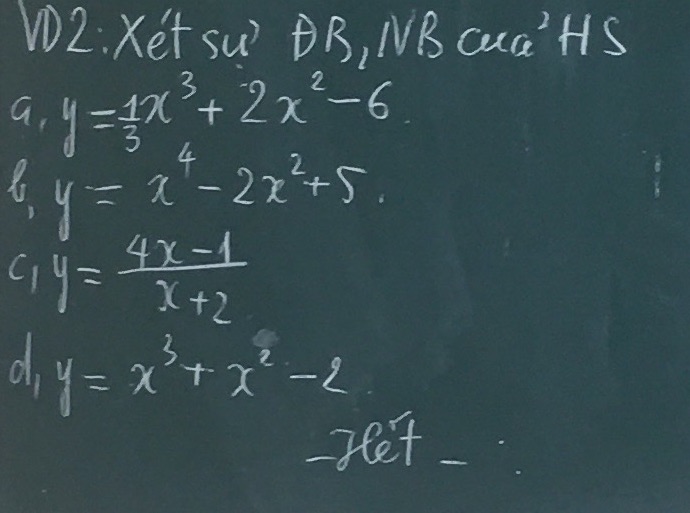 VD2: Xét sự ĐB, NB của HS
a, y = 1/3 x³ + 2x² - 6.
b, y = x⁴ - 2x² + 5.
c, y = (4x - 1)/(x + 2)
d, y = x³ + x² - 2
- Hết -